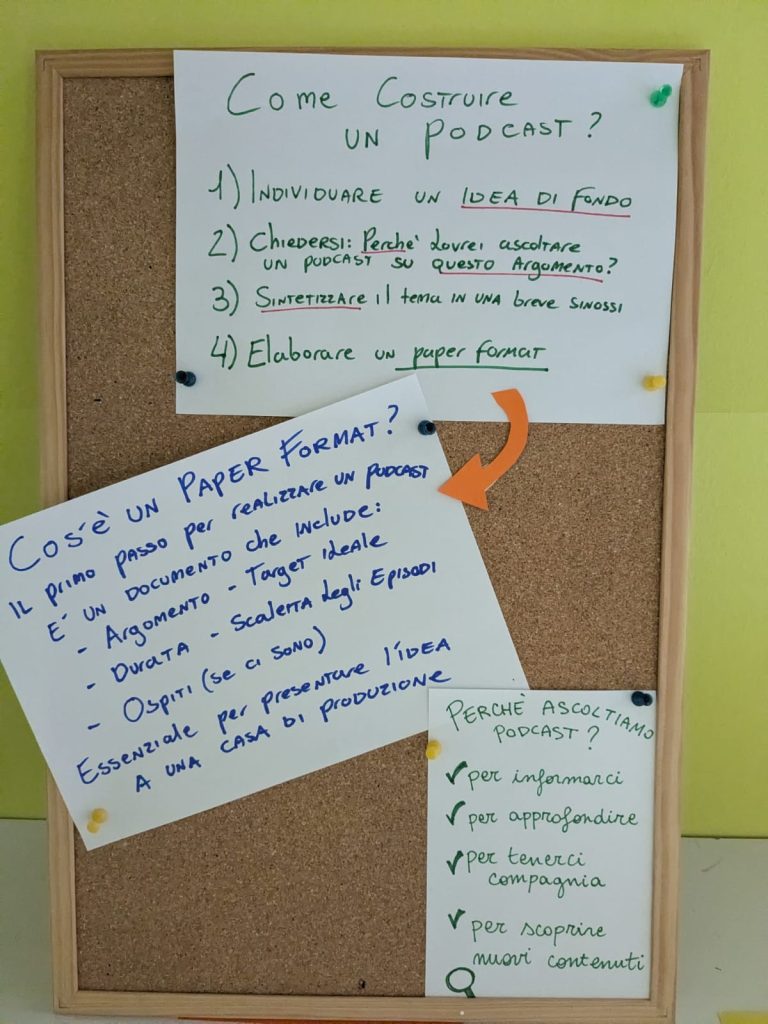 COME COSTRUIRE
UN PODCAST?
1) INDIVIDUARE UN IDEA DI FONDO
2) CHIEDERSI: Perchè dovrei ascoltare
UN PODCAST SU QUESTO ARGOMENTO?
3) SINTETIZZARE il tema IN UNA breve SINOSSI
4) Elaborare UN paper format
COS'È UN PAPER FORMAT?
IL PRIMO PASSO per REALIZZARE UN PODCAST
E' UN DOCUMENTO che INCLUDE:
- Argomento - Target ideale
- DURATA - Scaletta degli Episodi
- OSPITI (se ci SONO)
Essenziale per presentare l'IDEA
A UNA CASA DI PRODUZIONE
PERCHÈ ASCOLTIAMO
PODCAST?
✓ per informarci
✓ per approfondire
✓ per tenerci
compagnia
✓ per scoprire
nuovi contenuti